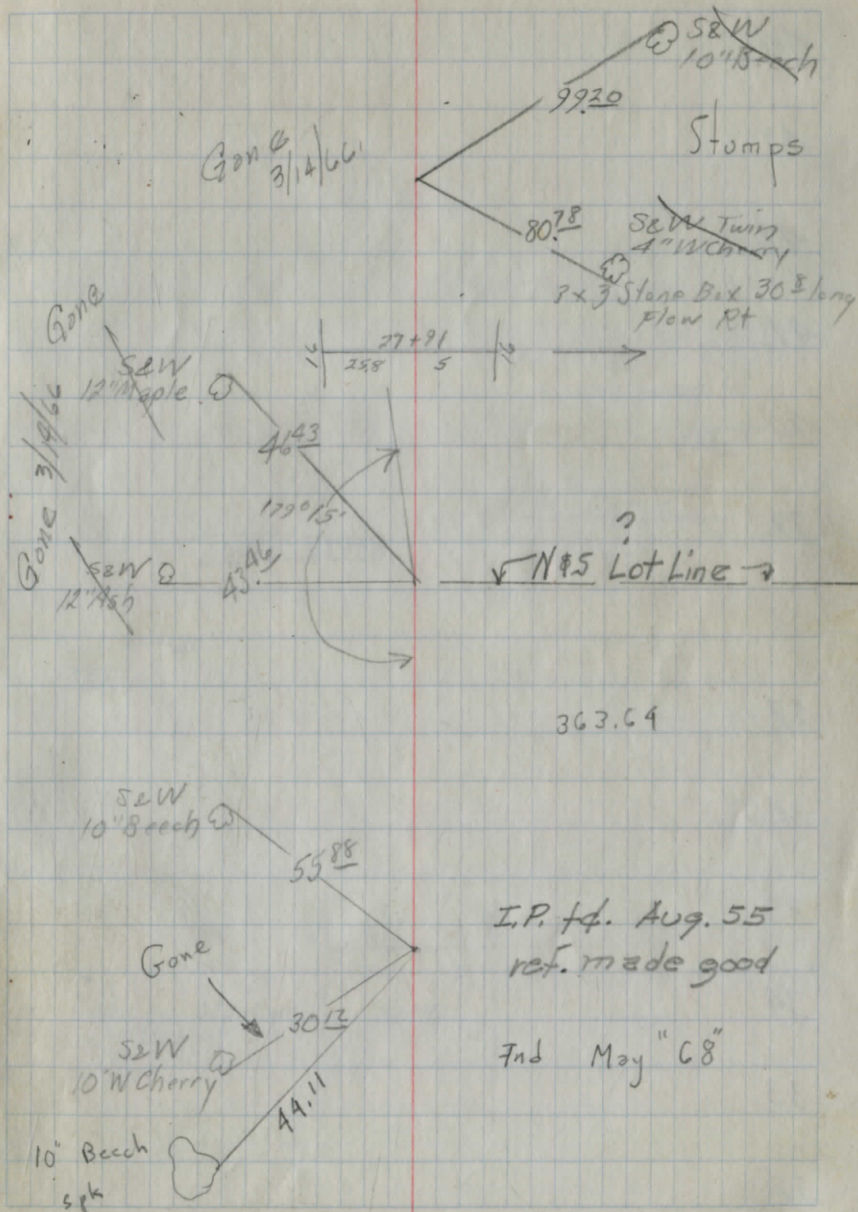 S&W
10" Beech
99.20
Stumps
Gone
3/14/66
80.78
S&W Twin
4" W Cherry
3 Stone Box 30 8 long
Flow Rt
Gone
27+91
16
25.8
5
S&W
12" Maple
46 43
179° 15'
Gone
?
N & S Lot Line
S&W
12" Ash
43.46
363.64
S&W
10" Beech
55 88
I.P. fd. Aug. 55
ref. made good
Gone
30 12
S&W
10" W Cherry
Fnd May "68"
44.11
10" Beech
spk